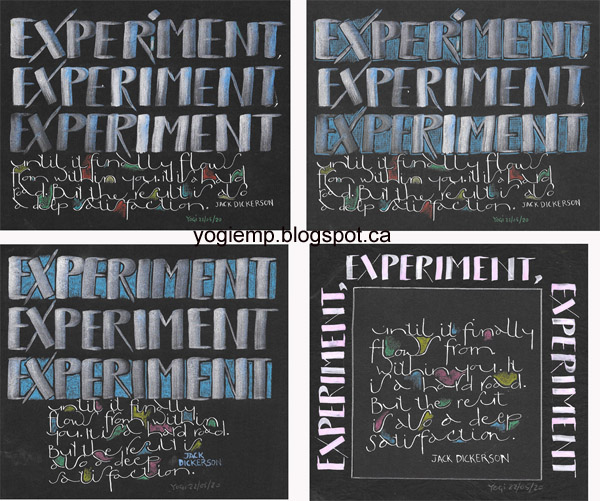 EXPERIMENT,
EXPERIMENT,
EXPERIMENT
until it finally flows
from within you. It is a hard
road. But the result is also
a deep satisfaction. JACK DICKERSON
Yogi 22/05/20
EXPERIMENT,
EXPERIMENT,
EXPERIMENT
until it finally flows
from within you. It is a hard
road. But the result is also
a deep satisfaction. JACK DICKERSON
Yogi 22/05/20
yogiemp.blogspot.ca
EXPERIMENT
EXPERIMENT
EXPERIMENT
until it finally
flows from within
you. It is a hard road.
But the result is
also a deep
satisfaction.
JACK
DICKERSON
Yogi 22/05/20
EXPERIMENT,
EXPERIMENT,
EXPERIMENT
until it finally
flows from
within you. It
is a hard road.
But the resut
is also a deep
satisfaction.
JACK DICKERSON
Yogi 22/05/20